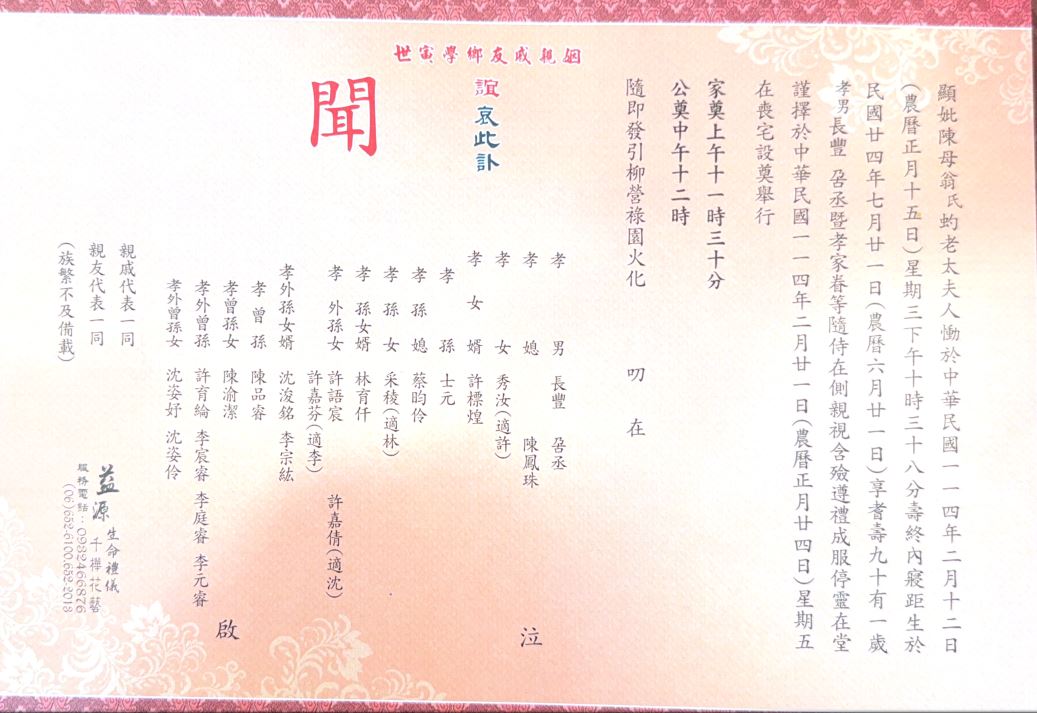 顯妣陳母翁氏虳老太夫人慟於中華民國一一四年二月十二日
(農曆正月十五日)星期三下午十時三十八分壽終內寢距生於
民國廿四年七月廿一日(農曆六月廿一日)享耆壽九十有一歲
孝男長豐 呂丞暨孝家眷等隨侍在側親視含殮遵禮成服停靈在堂
謹擇於中華民國一一四年二月廿一日(農曆正月廿四日)星期五
在喪宅設奠舉行
家奠上午十一時三十分
公奠中午十二時
隨即發引柳營祿園火化
叨 在
世寅學鄉友戚親姻
誼 哀此訃
聞
孝男 長豐 呂丞
孝媳 陳鳳珠
孝女 秀汝(適許)
孝女婿 許標煌
孝孫 士元
孝孫媳 蔡昀伶
孝孫女 采稜(適林)
孝孫女婿 林育仟
孝外孫女 許語宸 許嘉倩(適沈)
許嘉芬(適李)
孝外孫女婿 沈浚銘 李宗紘
孝曾孫 陳品睿
孝曾孫女 陳渝潔
孝外曾孫 許育綸 李宸睿 李庭睿 李元睿
孝外曾孫女 沈姿妤 沈姿伶
泣
啟
親戚代表一同
親友代表一同
(族繁不及備載)
益源生命禮儀
千樺花藝
服務電話:0932466876
(06)652-6100.652-2013